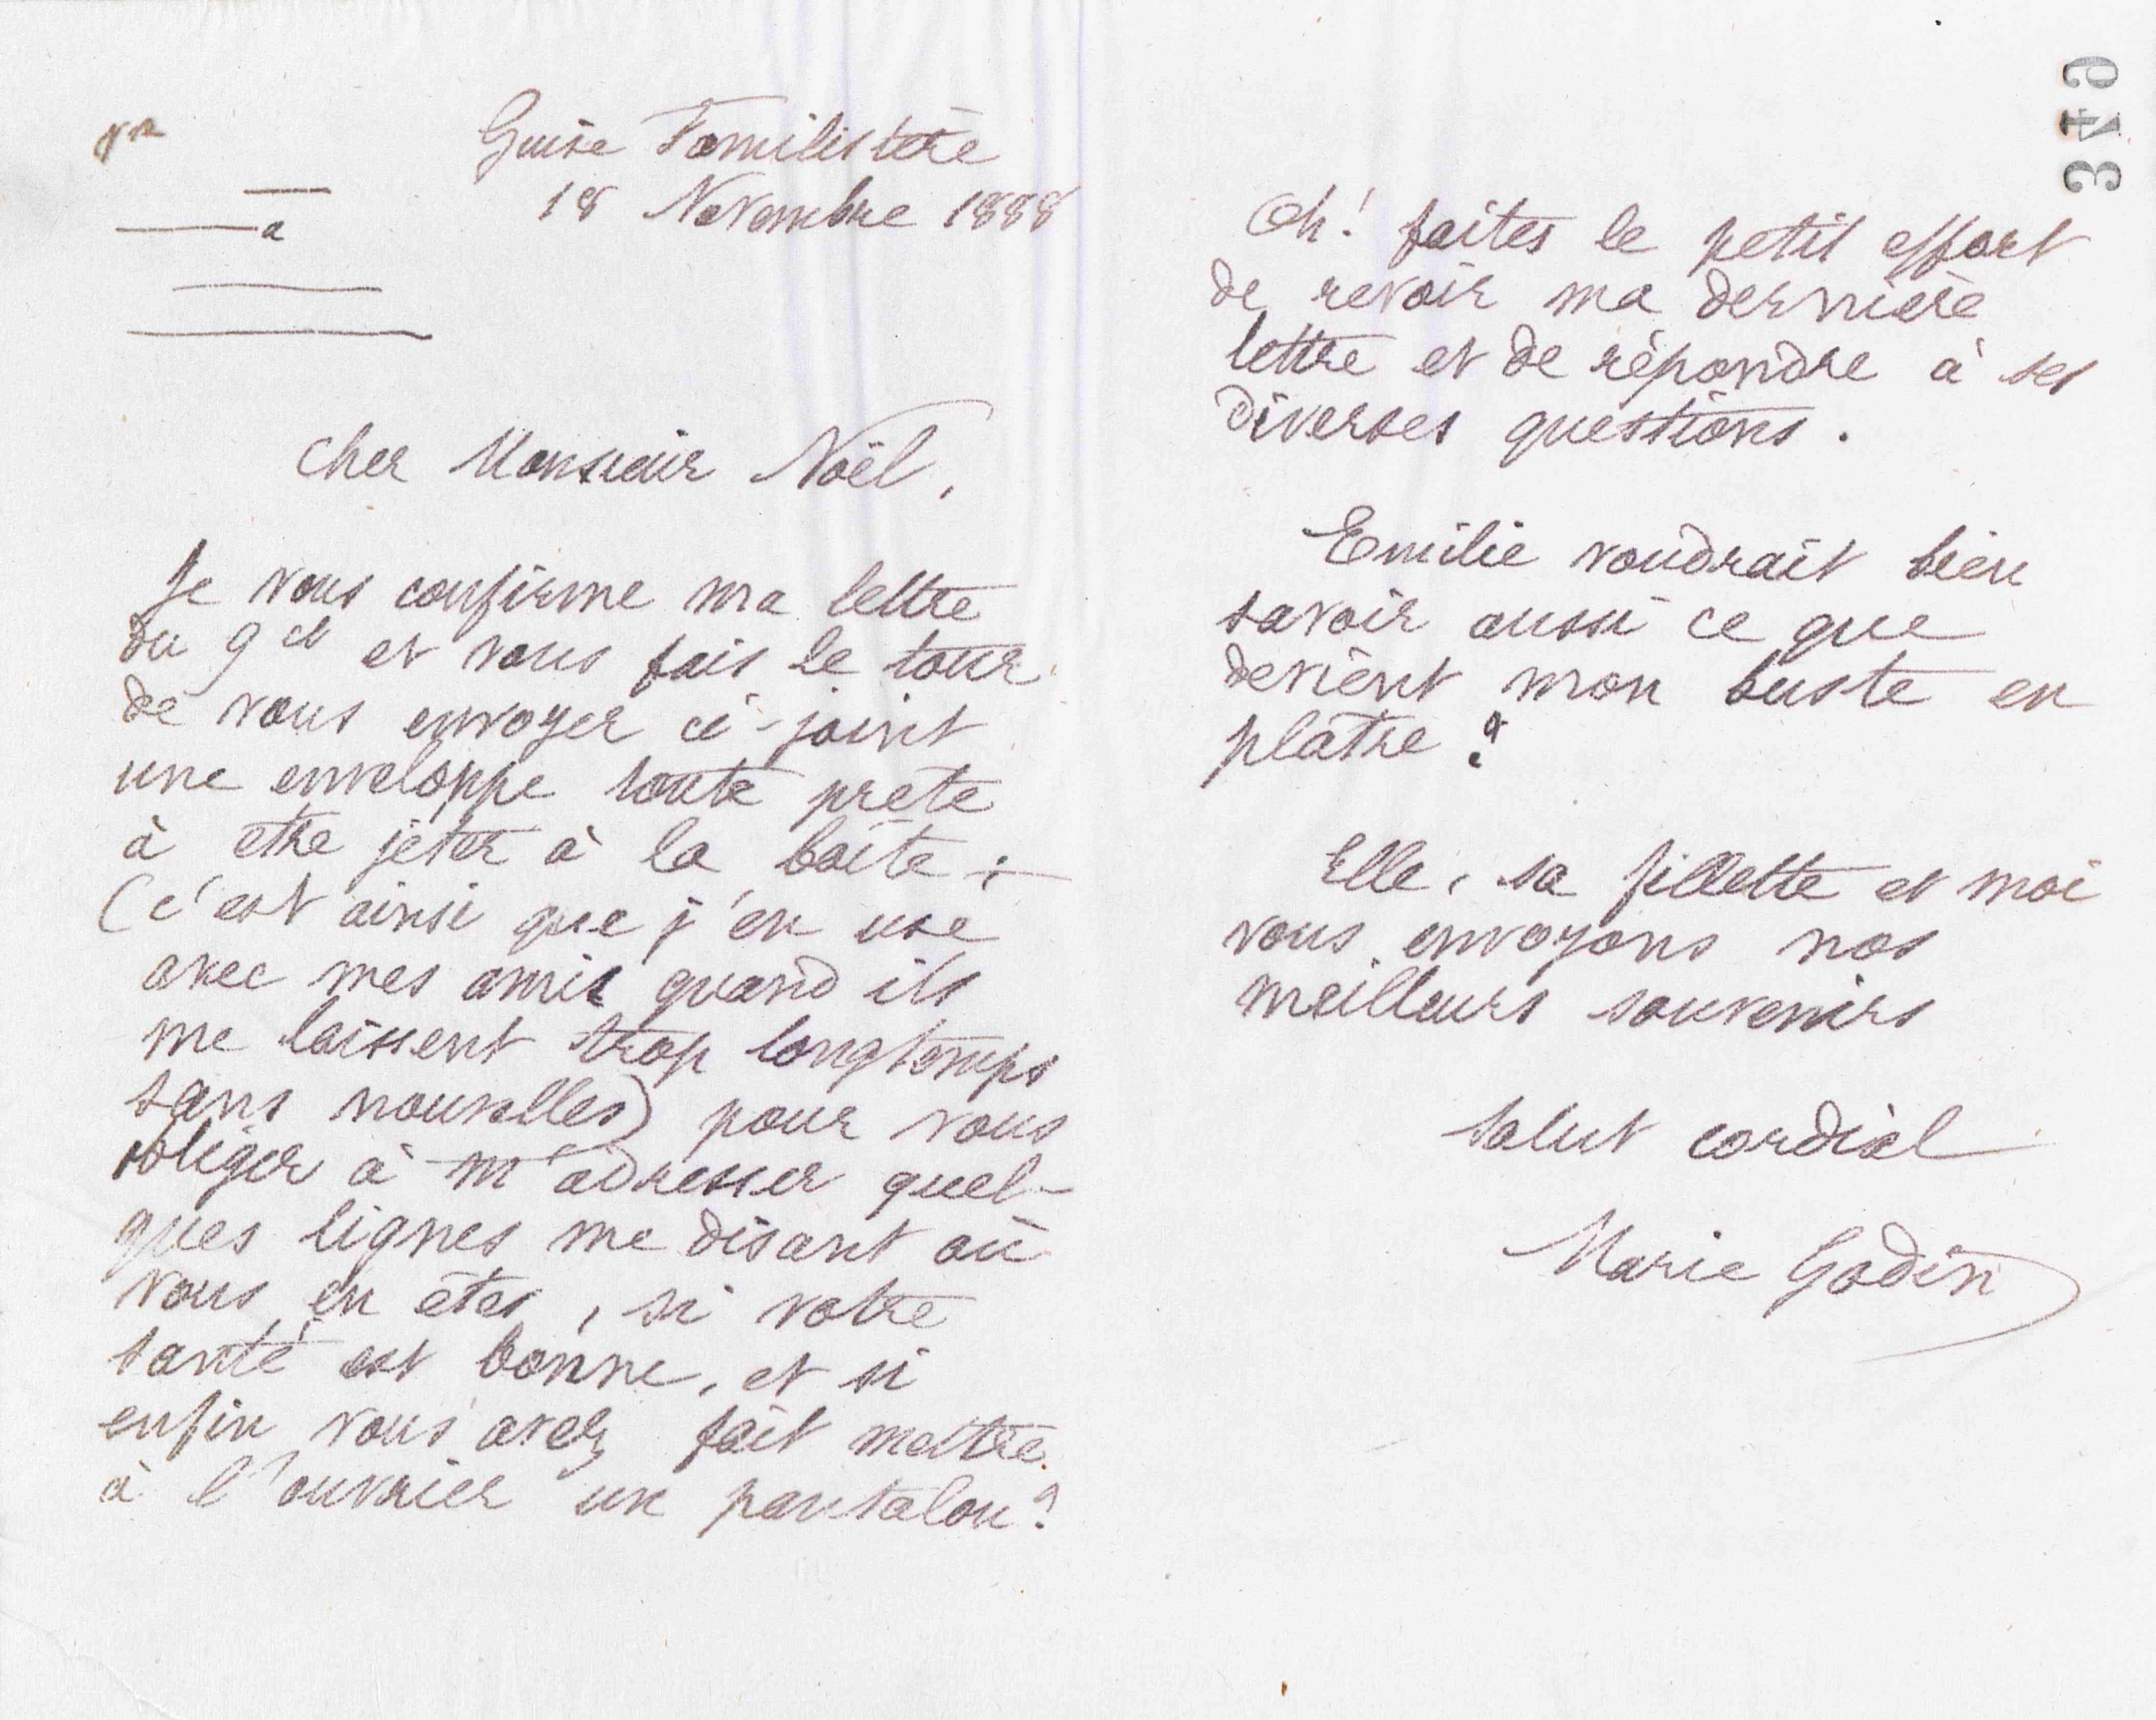 Guise Familistère
18 Novembre 1888
a
Cher Monsieur Noël,
Je vous confirme ma lettre
du 9 ct et vous fais le tour
de vous envoyer ci-joint
une enveloppe toute prête
à etre jeter à la boîte ;
(c'est ainsi que j'en use
avec mes amis quand ils
me laissent trop longtemps
sans nouvelles) pour vous
obliger à m'adresser quel-
ques lignes me disant où
vous en êtes, si votre
santé est bonne, et si
enfin vous avez fait mettre
à l'ouvrier un pantalon ?
Oh ! faites le petit effort
de revoir ma dernière
lettre et de répondre à ses
diverses questions.
Emilie voudrait bien
savoir aussi ce que
devient mon buste en
plâtre ?
Elle, sa fillette et moi
vous envoyons nos
meilleurs souvenirs
Salut cordial
Marie Godin